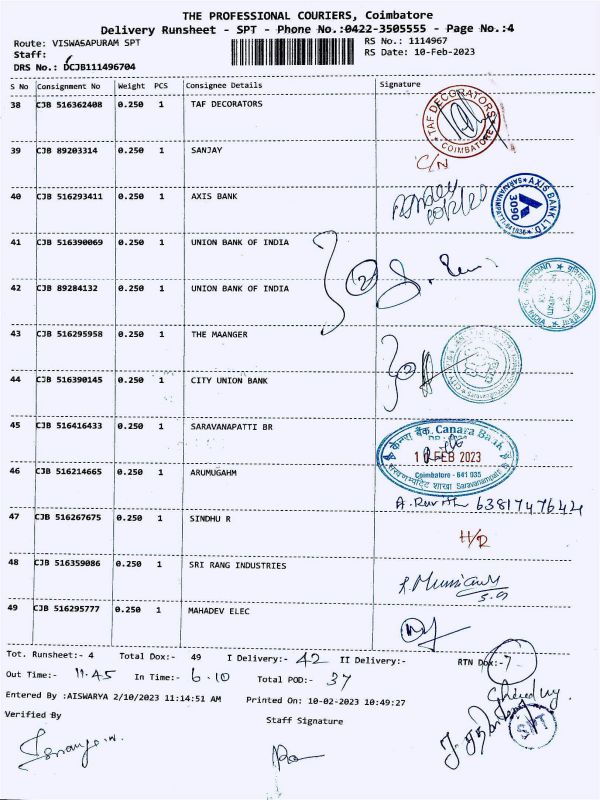 THE PROFESSIONAL COURIERS, Coimbatore
Delivery Runsheet - SPT - Phone No.:0422-3505555 - Page No.:4
Route: VISWASAPURAM SPT RS No.: 1114967
Staff: RS Date: 10-Feb-2023
DRS No.: DCJB111496704
S No Consignment No Weight PCS Consignee Details Signature
38 CJB 516362408 0.250 1 TAF DECORATORS
TAF DECORATORS
COIMBATORE
39 CJB 89203314 0.250 1 SANJAY
C/N
40 CJB 516293411 0.250 1 AXIS BANK
AXIS BANK LTD.
3090
41 CJB 516390069 0.250 1 UNION BANK OF INDIA
42 CJB 89284132 0.250 1 UNION BANK OF INDIA
43 CJB 516295958 0.250 1 THE MAANGER
44 CJB 516390145 0.250 1 CITY UNION BANK
45 CJB 516416433 0.250 1 SARAVANAPATTI BR
केनरा बैंक Canara Bank
10 FEB 2023
Coimbatore - 641 035
46 CJB 516214665 0.250 1 ARUMUGAHM
6381747642
47 CJB 516267675 0.250 1 SINDHU R
H/R
48 CJB 516359086 0.250 1 SRI RANG INDUSTRIES
49 CJB 516295777 0.250 1 MAHADEV ELEC
Tot. Runsheet:- 4 Total Dox:- 49 I Delivery:- 42 II Delivery:- RTN Dox:- 7
Out Time:- 11.45 In Time:- 6.10 Total POD:- 37
Entered By :AISWARYA 2/10/2023 11:14:51 AM Printed On: 10-02-2023 10:49:27
Verified By Staff Signature
SPT